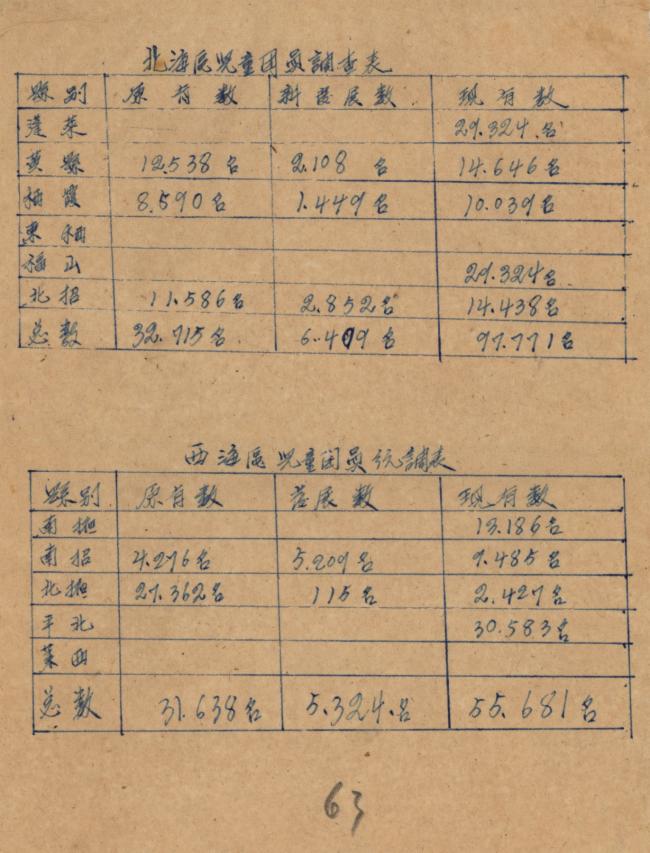 北海区児童团員調查表
縣别 原有数 新發展数 现有数
蓬莱 29.324名
黄縣 12.538名 2.108名 14.646名
栖霞 8.590名 1.449名 10.039名
東栖
福山 29.324名
北招 11.586名 2.852名 14.438名
总数 32.715名 6.409名 97.771名
西海區児童团員统調表
縣别 原有数 發展数 现有数
南掖 13.186名
南招 4.276名 5.209名 9.485名
北掖 27.362名 115名 2.427名
平北 30.583名
莱西
总数 31.638名 5.324名 55.681名
63